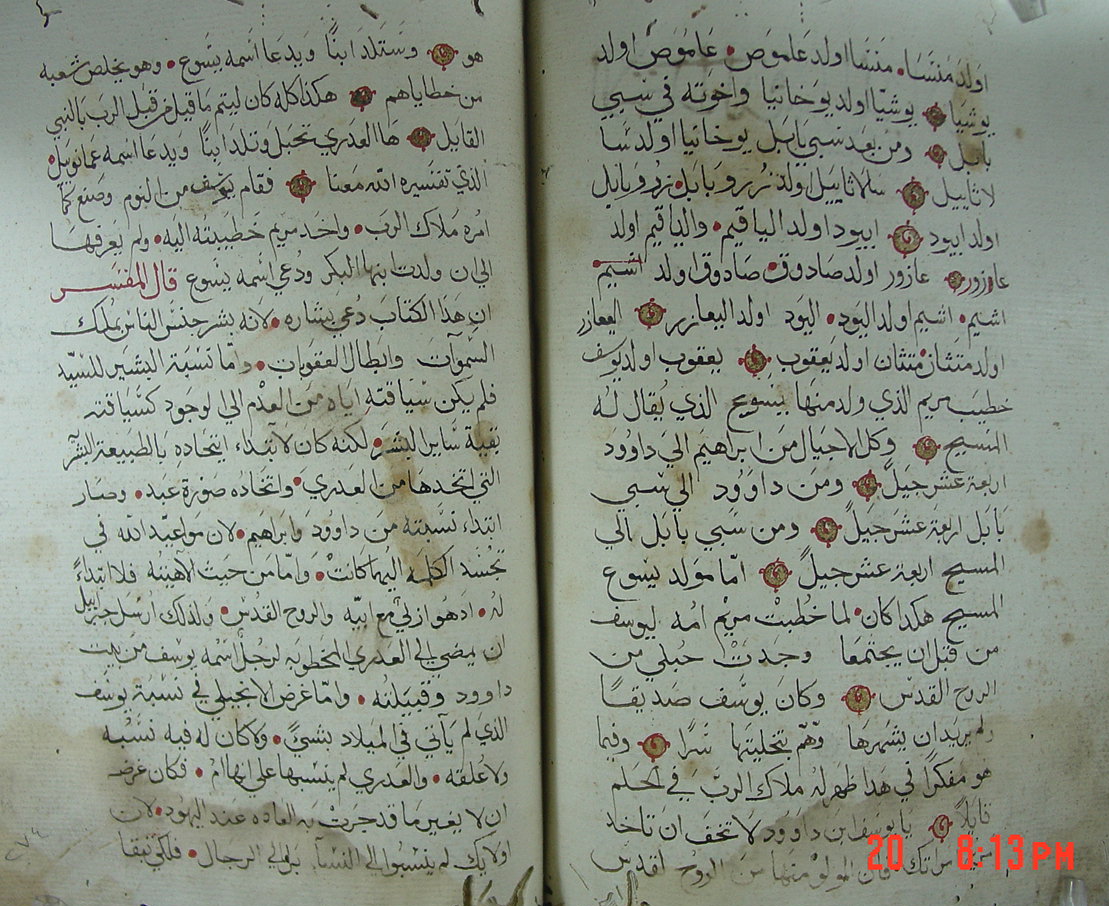 اولد مَنسَا. مَنسَا اولد عاموَص. عَامَوص اولد
يوشيا يوشيّا اولد يوخانيا واخوته في سَبي
بابل ومن بعد سبي بابل يوخانيا اولد شا
لاتاييل سلاتاييل اولد زربابل. زروبابل
اولد ابيود ابيود اولد الياقيم. والياقيم اولد
عازور عازور اولد صادوق. صادوق اولد اشيم
اشيم. اشيم اولد اليود. اليود اولد اليعازر اليعازر
اولد متثان. متثان اولد يعقوب يعقوب اولد يوسف
خطيب مريم الذي ولد منها يسوع الذي يُقال له
المسيح وكل الاجيال من ابراهيم الي داوود
اربعة عشر جيلً ومن داوود الي سبي
بابل اربعة عشر جيلً ومن سبي بابل الي
المسيح اربعة عشر جيلً امّا مولد يسوع
المسيح هكذا كان. لما خُطبت مريم امه ليوسف
من قبل ان يجتمعا وجدت حُبلي من
الروح القدس وكان يوسَف صديقًا
ولم يريد ان يشهرها وهّم بتخليتها سرًا وفيما
هو مفكرًا في هذا ظهر له ملاك الربّ في الحلم
قايلاً يا يوسف بن داوود لا تخف ان تاخد
مريم امراتك فان المولود منها من الروح القدس
20 8:13 PM
هو وستلد ابنًا ويدعا اسمه يسوع. وهو يخلص شعبه
من خطاياهم هكذا كله كان ليتم ما قيل من قبل الرب بالنبي
القايل ها العدري تحبل وتلد ابنًا ويدعا اسمه عمانويل.
الذي تفسيره الله معنا فقام يوسف من النوم وصنع كما
امره ملاك الرب. واخد مريم خطيبته اليه. ولم يعرفها
الي ان ولدت ابنها البكر ودُعي اسمه يسوع قال المفسَر
ان هذا الكتاب دُعي بشاره. لانه بشر جنس الناس بملك
السموات وابطال العقوبات. واما نسبة البشير للسيّد
فلم يكن سياقته اياه من العدم الي الوجود كسياقته
بقية ساير البشر. لكنه كان لابتداء اتحاده بالطبيعة البشر
التي اتخدها من العدري. واتخاده صورة عبد. وصار
ابتداء نسبته من داوود وابراهيم. لان مواعيد الله في
تجسد الكلمه اليهما كانت. وامّا من حيث لاهيته فلا ابتداءً
له. اد هو ازلي مع ابيه والروح القدس. ولذلك ارسل جبراييل
ان يمضي الي العدري المخطوبه لرجل اسمه يوسف من بيت
داوود وقبيلته. وامّا غرض الانجيلي في نسبة يوسف
الذي لم ياتي في الميلاد بشيً. ولا كان له فيه نسبه
ولا علقه. والعدري لم ينسبها علي انها امُ. فكان غرضه
ان لا يغير ما قد جرت به العاده عند اليهود. لان
اولايك لم ينسبوا الي النسآ بل الي الرجال. فلكي تبقا